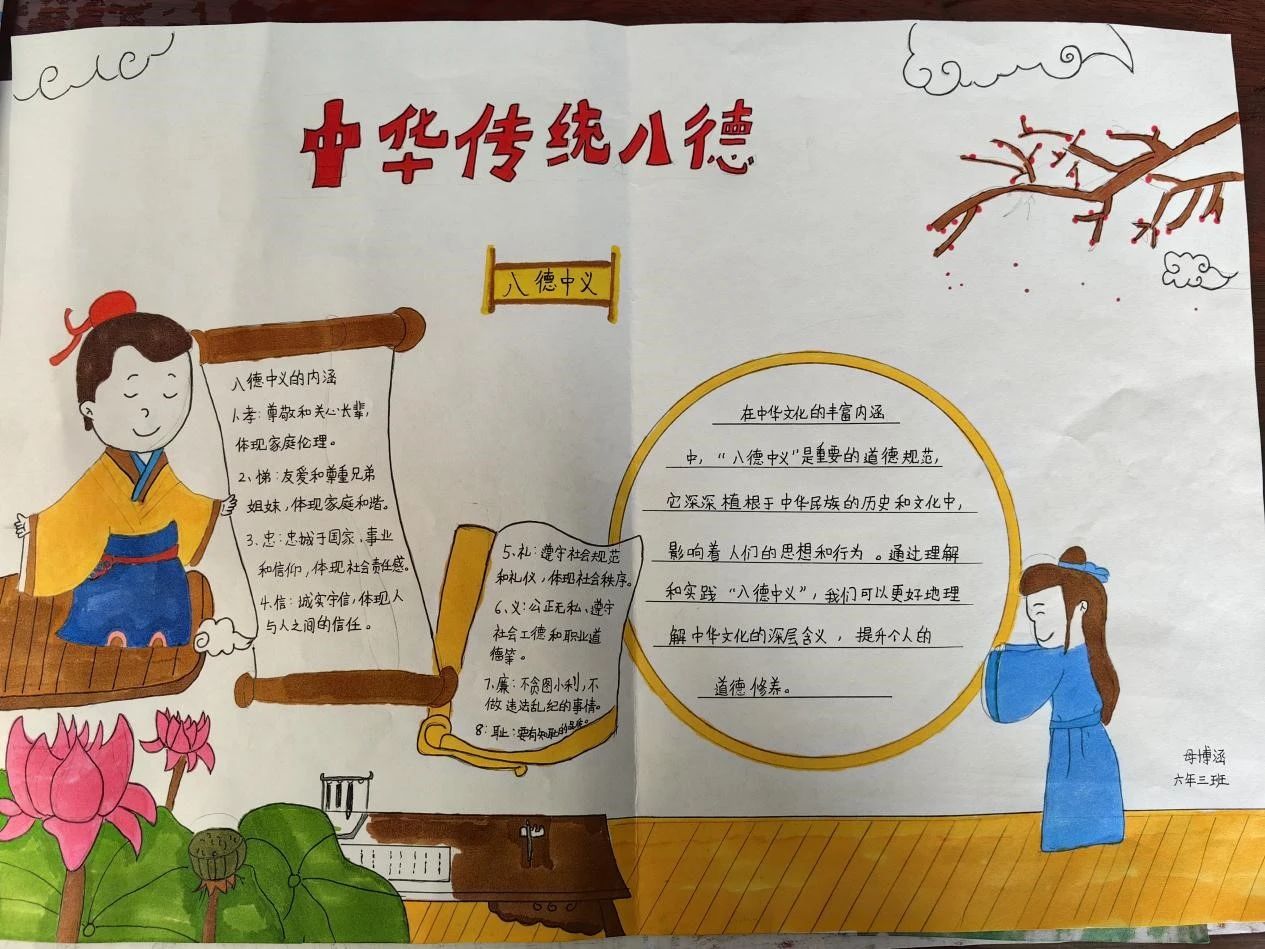 中华传统八德
八德中义
八德中义的内涵
1、孝:尊敬和关心长辈,
体现家庭伦理。
2、悌:友爱和尊重兄弟
姐妹,体现家庭和谐。
3、忠:忠诚于国家、事业
和信仰,体现社会责任感。
4、信:诚实守信,体现人
与人之间的信任。
5、礼:遵守社会规范
和礼仪,体现社会秩序。
6、义:公正无私、遵守
社会工德和职业道
德等。
7、廉:不贪图小利,不
做违法乱纪的事情。
8:耻:要有知耻的品质。
在中华文化的丰富内涵
中,“八德中义”是重要的道德规范,
它深深植根于中华民族的历史和文化中,
影响着人们的思想和行为。通过理解
和实践“八德中义”,我们可以更好地理
解中华文化的深层含义,提升个人的
道德修养。
母博涵
六年三班